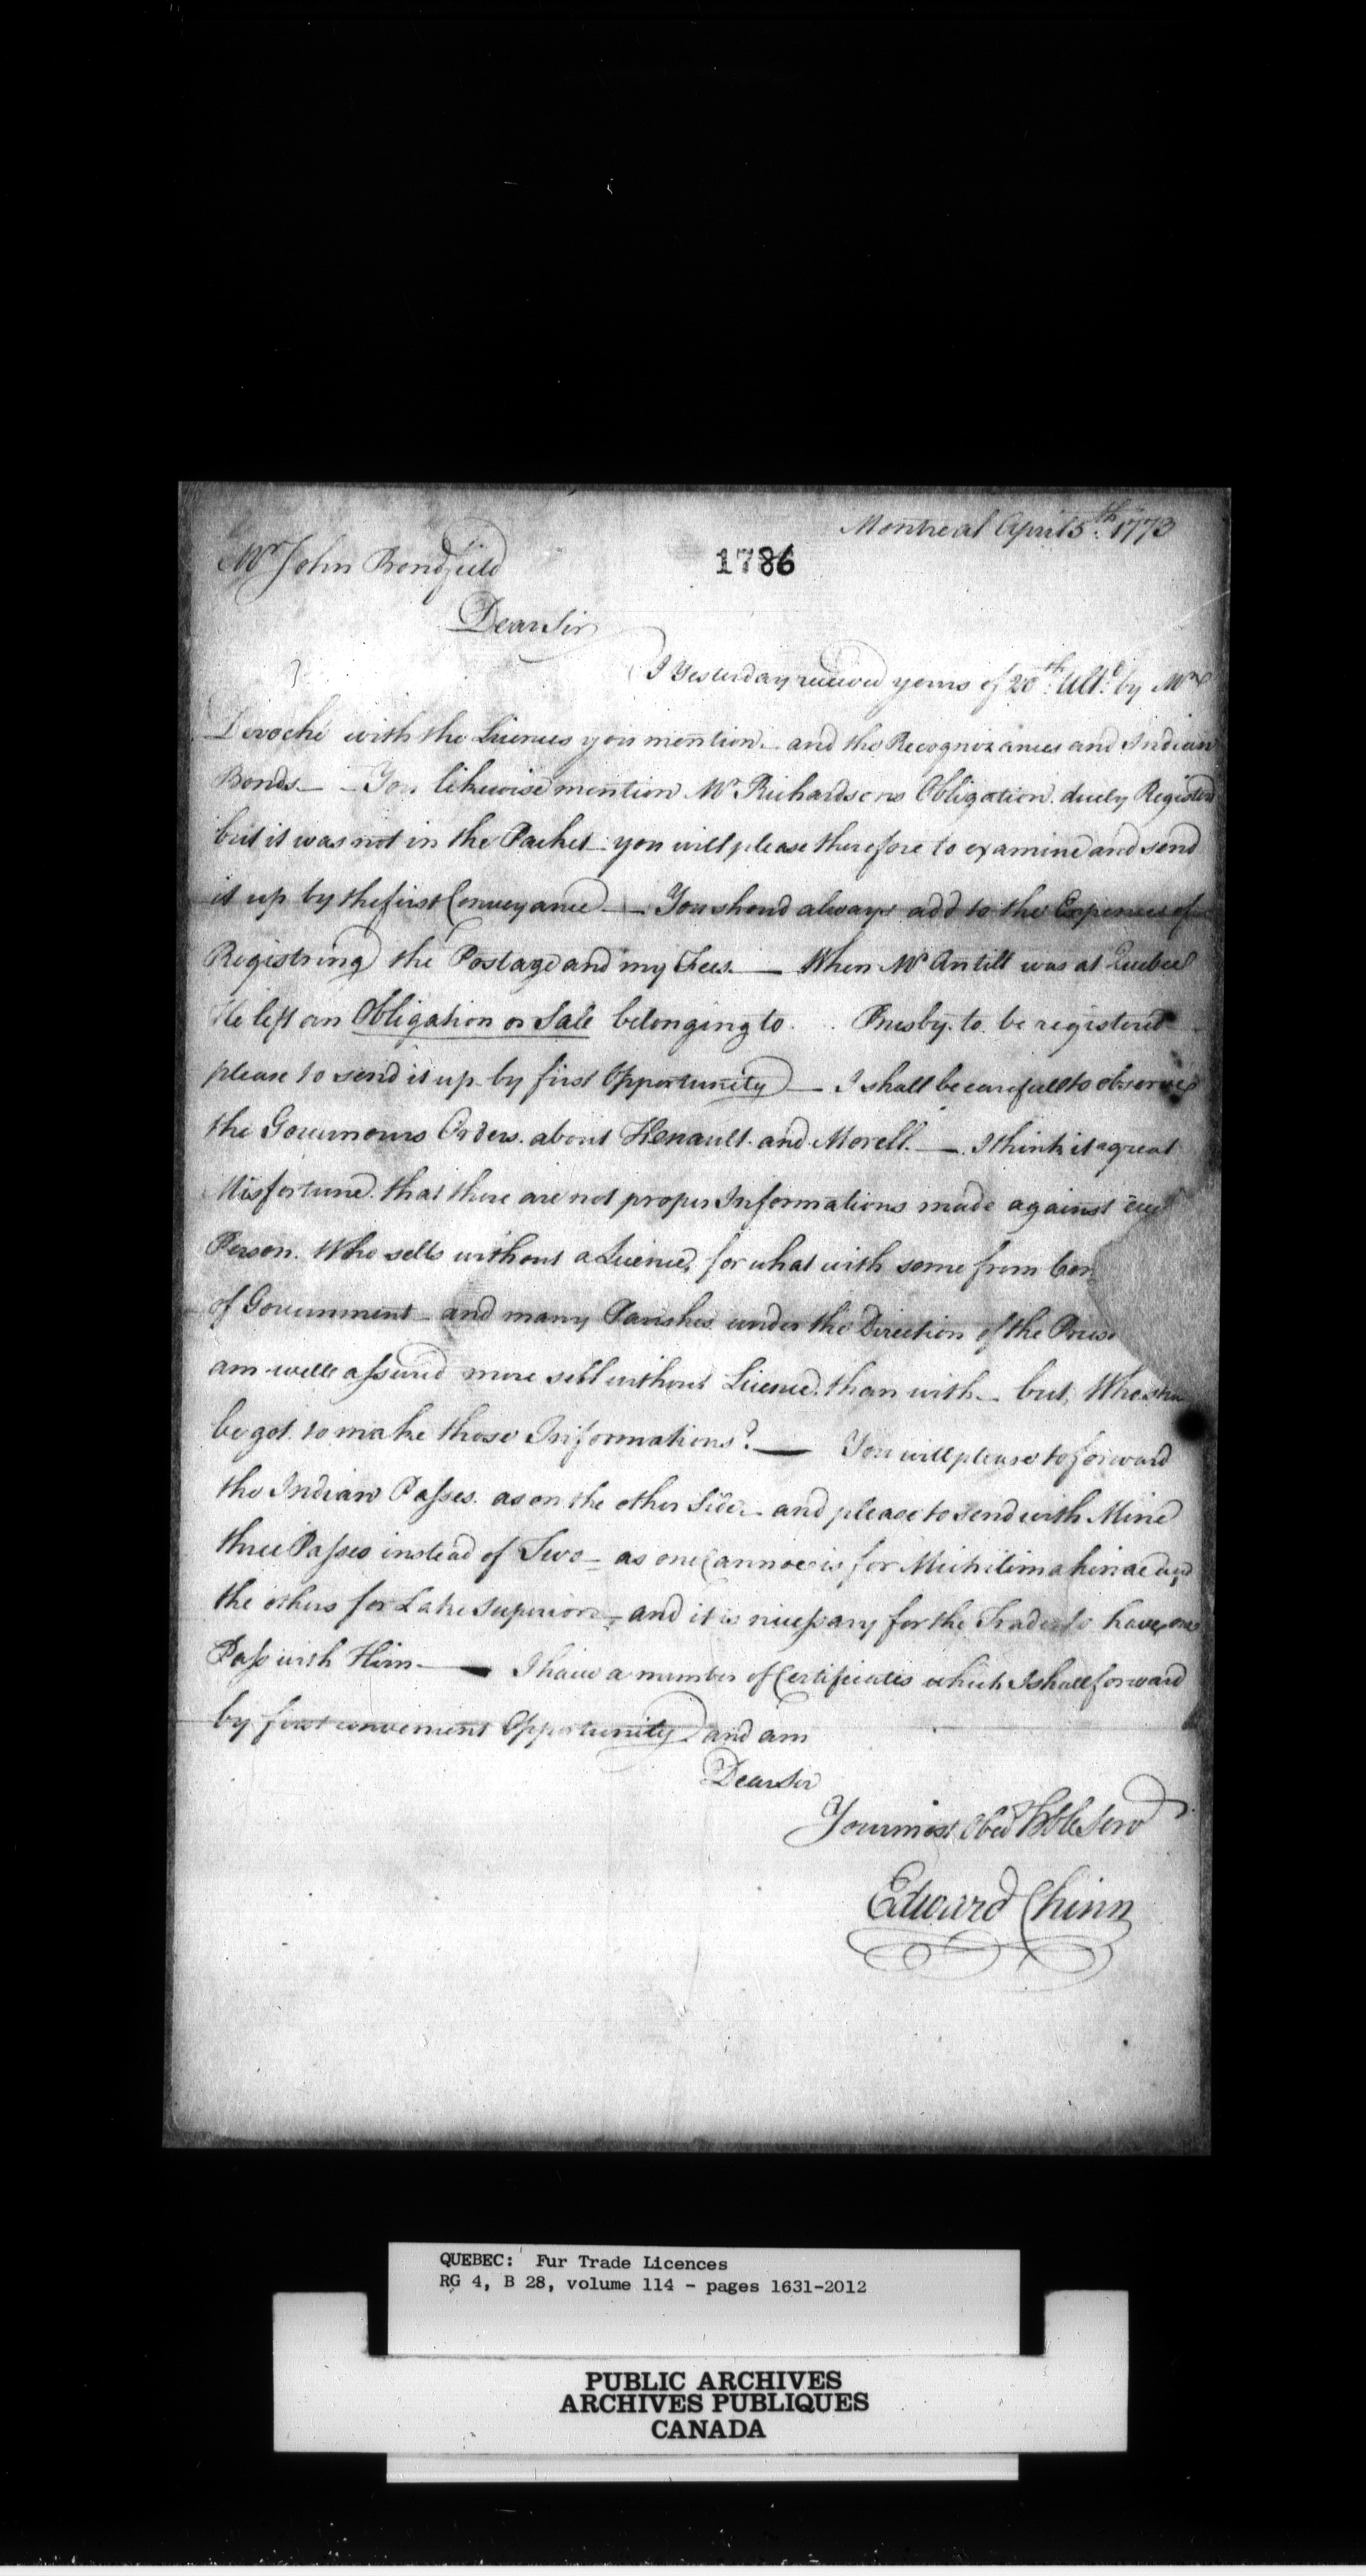 Montreal April 5.th 1773
1786
Mr John Bondfield
Dear Sir
I Yesterday received yours of 20th. Ulto. by Mr
Deroché with the Licences you mention – and the Recognizances and Indian
Bonds – – You likewise mention Mr Richardsons Obligation duely Registerd
but it was not in the Packet – you will please therefore to examine and send
it up by the first Conveyance — You shoud always add to the Expences of
Registring the Postage and my Fees. — When Mr Antill was at Quebec
He left an Obligation or Sale belonging to . . to be registered
please to send it up by first Opportunity — I shall be carefull to observe
the Governours Orders about Henault and Morell. — I think it a great
Misfortune that there are not proper Informations made against
Person Who sells without a Licence, for what with some from
of Government – and many Parishes under the Direction of the
am well assured more sell without Licence than with – but, Who
be got to make those Informations? — You will please to forward
the Indian Passes as on the other Side – and please to send with Mine
three Passes instead of Two – as one Cannoe is for Michilimakinac and
the others for Lake Superiour – and it is nicessary for the Trader to have one
Pass with Him — I have a number of Certificates which I shall forward
by first convenient Opportunity and am
Dear Sir
Your most Obed Hble Serv
Edward Chinn
QUEBEC: Fur Trade Licences
RG 4, B 28, volume 114 - pages 1631-2012
PUBLIC ARCHIVES
ARCHIVES PUBLIQUES
CANADA